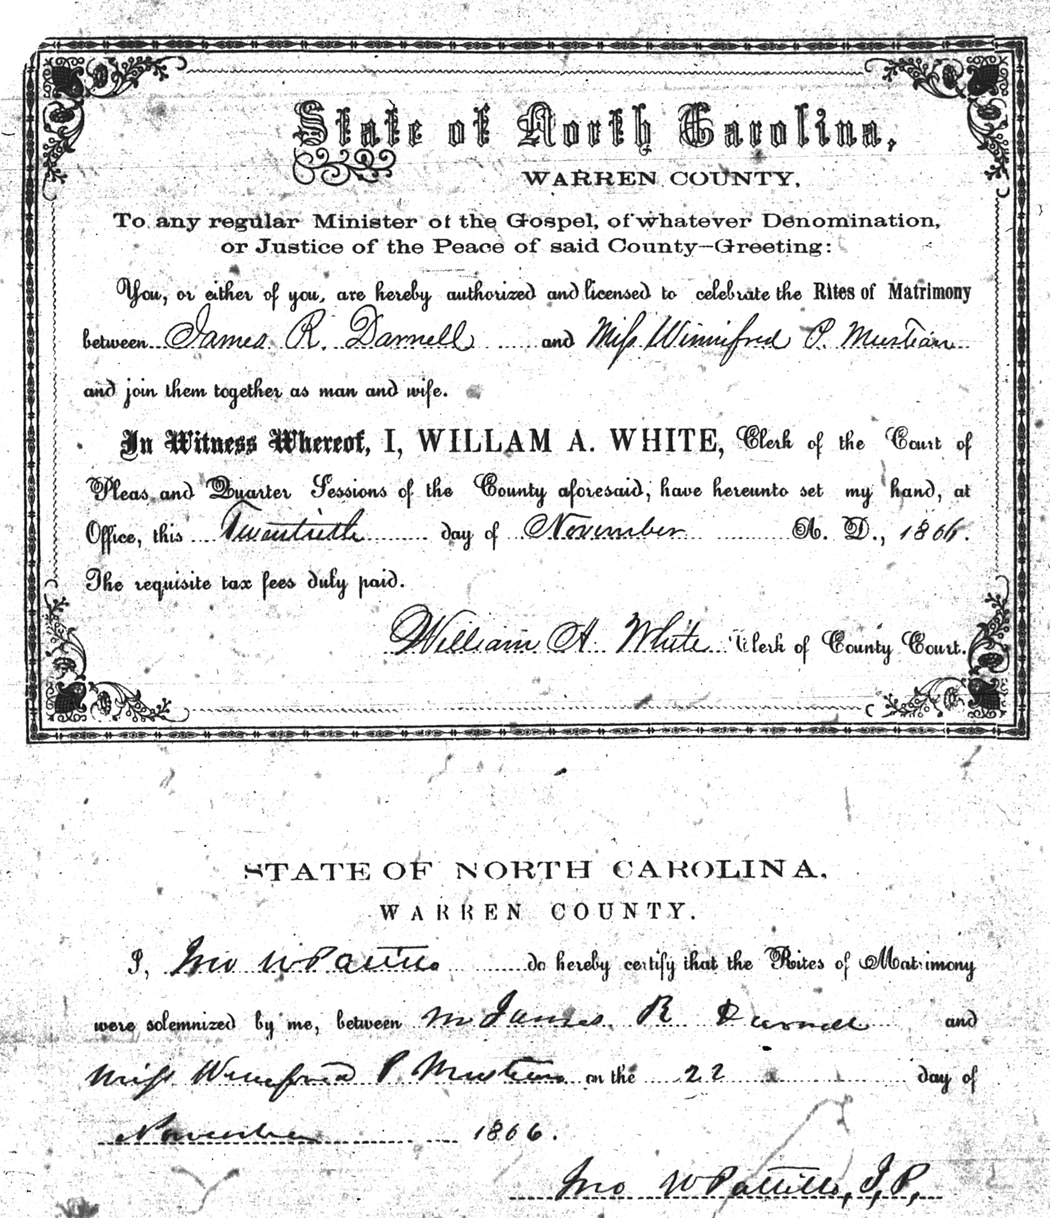 State of North Carolina,
WARREN COUNTY,
To any regular Minister of the Gospel, of whatever Denomination,
or Justice of the Peace of said County—Greeting:
You, or either of you, are hereby authorized and licensed to celebrate the Rites of Matrimony
between James R. Darnell and Miss Winnifred P. Mustian
and join them together as man and wife.
In Witness Whereof, I, WILLAM A. WHITE, Clerk of the Court of
Pleas and Quarter Sessions of the County aforesaid, have hereunto set my hand, at
Office, this Twentieth day of November A. D., 1866.
The requisite tax fees duly paid.
William A. White Clerk of County Court.
STATE OF NORTH CAROLINA,
WARREN COUNTY.
I, Jno W Pattillo do hereby certify that the Rites of Matrimony
were solemnized by me, between Mr James R Darnell and
Miss Winefred P Mustian on the 22 day of
November 1866.
Jno W Pattillo, J, P,